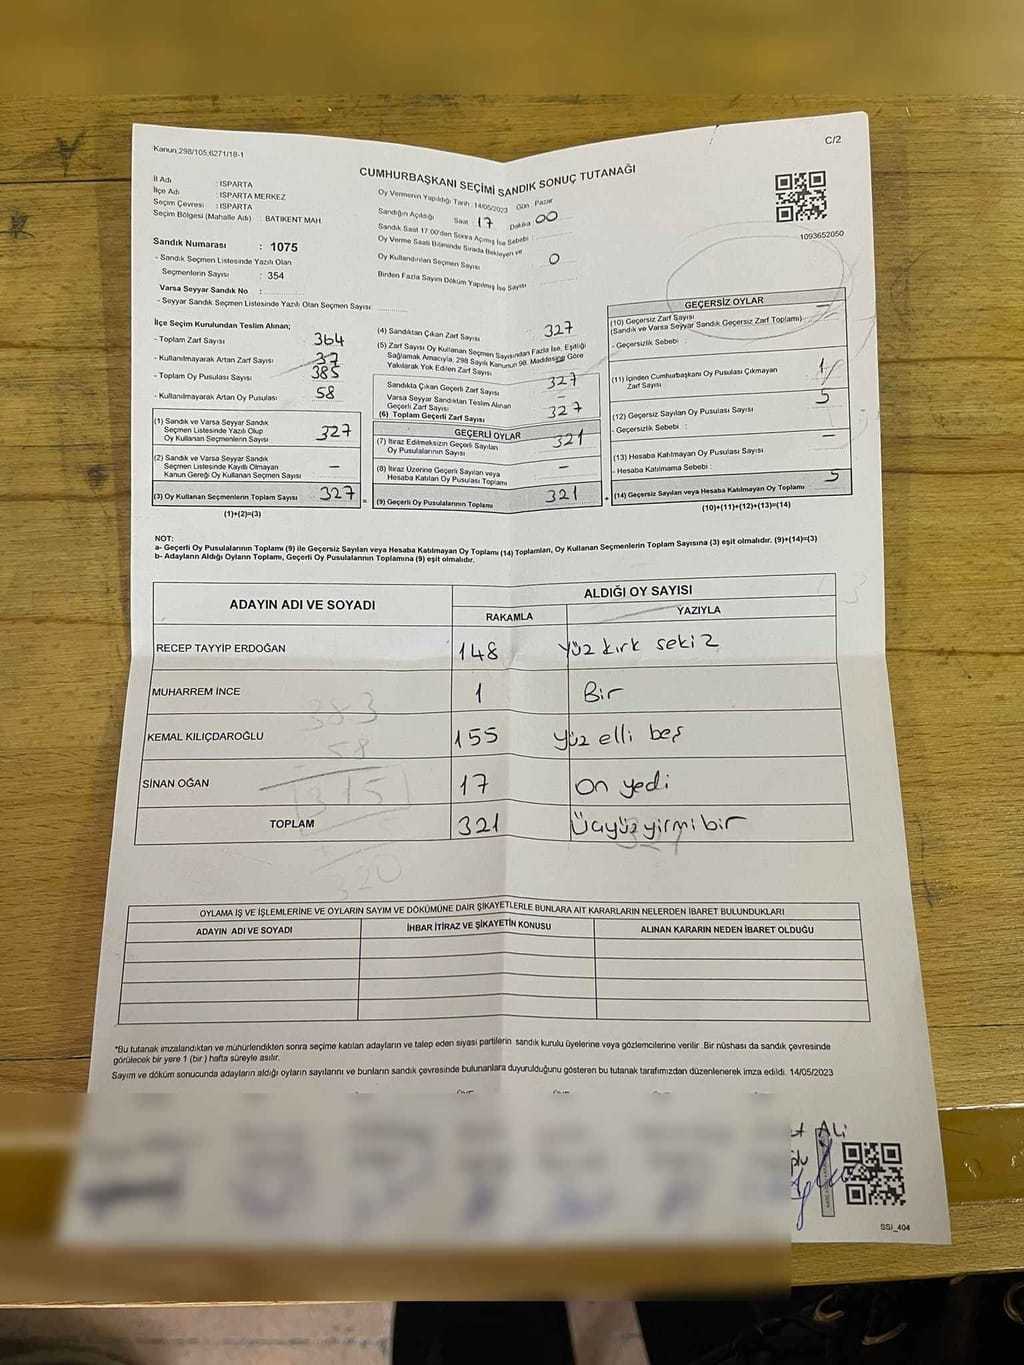 Kanun 298/105,6271/18-1
C/2
CUMHURBAŞKANI SEÇİMİ SANDIK SONUÇ TUTANAĞI
İl Adı : ISPARTA
İlçe Adı : ISPARTA MERKEZ
Seçim Çevresi : ISPARTA
Seçim Bölgesi (Mahalle Adı) : BATIKENT MAH.
Sandık Numarası : 1075
- Sandık Seçmen Listesinde Yazılı Olan
Seçmenlerin Sayısı : 354
Varsa Seyyar Sandık No :
- Seyyar Sandık Seçmen Listesinde Yazılı Olan Seçmen Sayısı:
Oy Vermenin Yapıldığı Tarih : 14/05/2023 Gün : Pazar
Sandığın Açıldığı Saat : 17 Dakika : 00
Sandık Saat 17.00'den Sonra Açılmış İse Sebebi :
Oy Verme Saati Bitiminde Sırada Bekleyen ve
Oy Kullandırılan Seçmen Sayısı 0
Birden Fazla Sayım Döküm Yapılmış İse Sayısı
1093652050
İlçe Seçim Kurulundan Teslim Alınan;
- Toplam Zarf Sayısı 364
- Kullanılmayarak Artan Zarf Sayısı 37
- Toplam Oy Pusulası Sayısı 385
- Kullanılmayarak Artan Oy Pusulası 58
(1) Sandık ve Varsa Seyyar Sandık
Seçmen Listesinde Yazılı Olup
Oy Kullanan Seçmenlerin Sayısı 327
(2) Sandık ve Varsa Seyyar Sandık
Seçmen Listesinde Kayıtlı Olmayan
Kanun Gereği Oy Kullanan Seçmen Sayısı —
(3) Oy Kullanan Seçmenlerin Toplam Sayısı 327 =
(1)+(2)=(3)
(4) Sandıktan Çıkan Zarf Sayısı 327
(5) Zarf Sayısı Oy Kullanan Seçmen Sayısından Fazla İse, Eşitliği
Sağlamak Amacıyla, 298 Sayılı Kanunun 98. Maddesine Göre
Yakılarak Yok Edilen Zarf Sayısı
Sandıkta Çıkan Geçerli Zarf Sayısı 327
Varsa Seyyar Sandıktan Teslim Alınan
Geçerli Zarf Sayısı —
(6) Toplam Geçerli Zarf Sayısı 327
GEÇERLİ OYLAR
(7) İtiraz Edilmeksizin Geçerli Sayılan
Oy Pusulalarının Sayısı 321
(8) İtiraz Üzerine Geçerli Sayılan veya
Hesaba Katılan Oy Pusulası Toplamı —
(9) Geçerli Oy Pusulalarının Toplamı 321 +
GEÇERSİZ OYLAR
(10) Geçersiz Zarf Sayısı
(Sandık ve Varsa Seyyar Sandık Geçersiz Zarf Toplamı) —
- Geçersizlik Sebebi :
(11) İçinden Cumhurbaşkanı Oy Pusulası Çıkmayan
Zarf Sayısı 1
(12) Geçersiz Sayılan Oy Pusulası Sayısı 5
- Geçersizlik Sebebi :
(13) Hesaba Katılmayan Oy Pusulası Sayısı —
- Hesaba Katılmama Sebebi :
(14) Geçersiz Sayılan veya Hesaba Katılmayan Oy Toplamı 5
(10)+(11)+(12)+(13)=(14)
NOT:
a- Geçerli Oy Pusulalarının Toplamı (9) ile Geçersiz Sayılan veya Hesaba Katılmayan Oy Toplamı (14) Toplamları, Oy Kullanan Seçmenlerin Toplam Sayısına (3) eşit olmalıdır. (9)+(14)=(3)
b- Adayların Aldığı Oyların Toplamı, Geçerli Oy Pusulalarının Toplamına (9) eşit olmalıdır.
ADAYIN ADI VE SOYADI
ALDIĞI OY SAYISI
RAKAMLA YAZIYLA
RECEP TAYYİP ERDOĞAN 148 yüz kırk sekiz
MUHARREM İNCE 1 Bir
383
KEMAL KILIÇDAROĞLU 155 yüz elli beş
58
SİNAN OĞAN 17 On yedi
315
TOPLAM 321 Üçyüzyirmibir
327
320
OYLAMA İŞ VE İŞLEMLERİNE VE OYLARIN SAYIM VE DÖKÜMÜNE DAİR ŞİKAYETLERLE BUNLARA AİT KARARLARIN NELERDEN İBARET BULUNDUKLARI
ADAYIN ADI VE SOYADI İHBAR İTİRAZ VE ŞİKAYETİN KONUSU ALINAN KARARIN NEDEN İBARET OLDUĞU
*Bu tutanak imzalandıktan ve mühürlendikten sonra seçime katılan adayların ve talep eden siyasi partilerin sandık kurulu üyelerine veya gözlemcilerine verilir. Bir nüshası da sandık çevresinde
görülecek bir yere 1 (bir) hafta süreyle asılır.
Sayım ve döküm sonucunda adayların aldığı oyların sayılarını ve bunların sandık çevresinde bulunanlara duyurulduğunu gösteren bu tutanak tarafımızdan düzenlenerek imza edildi. 14/05/2023
Ali
SSİ_404